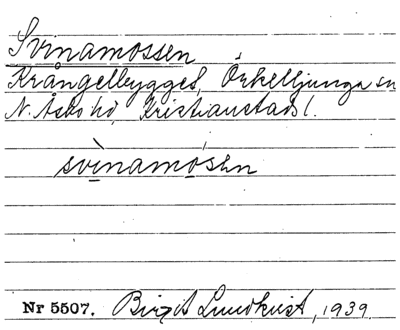 Svinamossen
Krångelbygget, Örkelljunga sn
N. Åsbo hd, Kristianstads l.
svìnamósen
Nr 5507. Birgit Lundkvist, 1939.